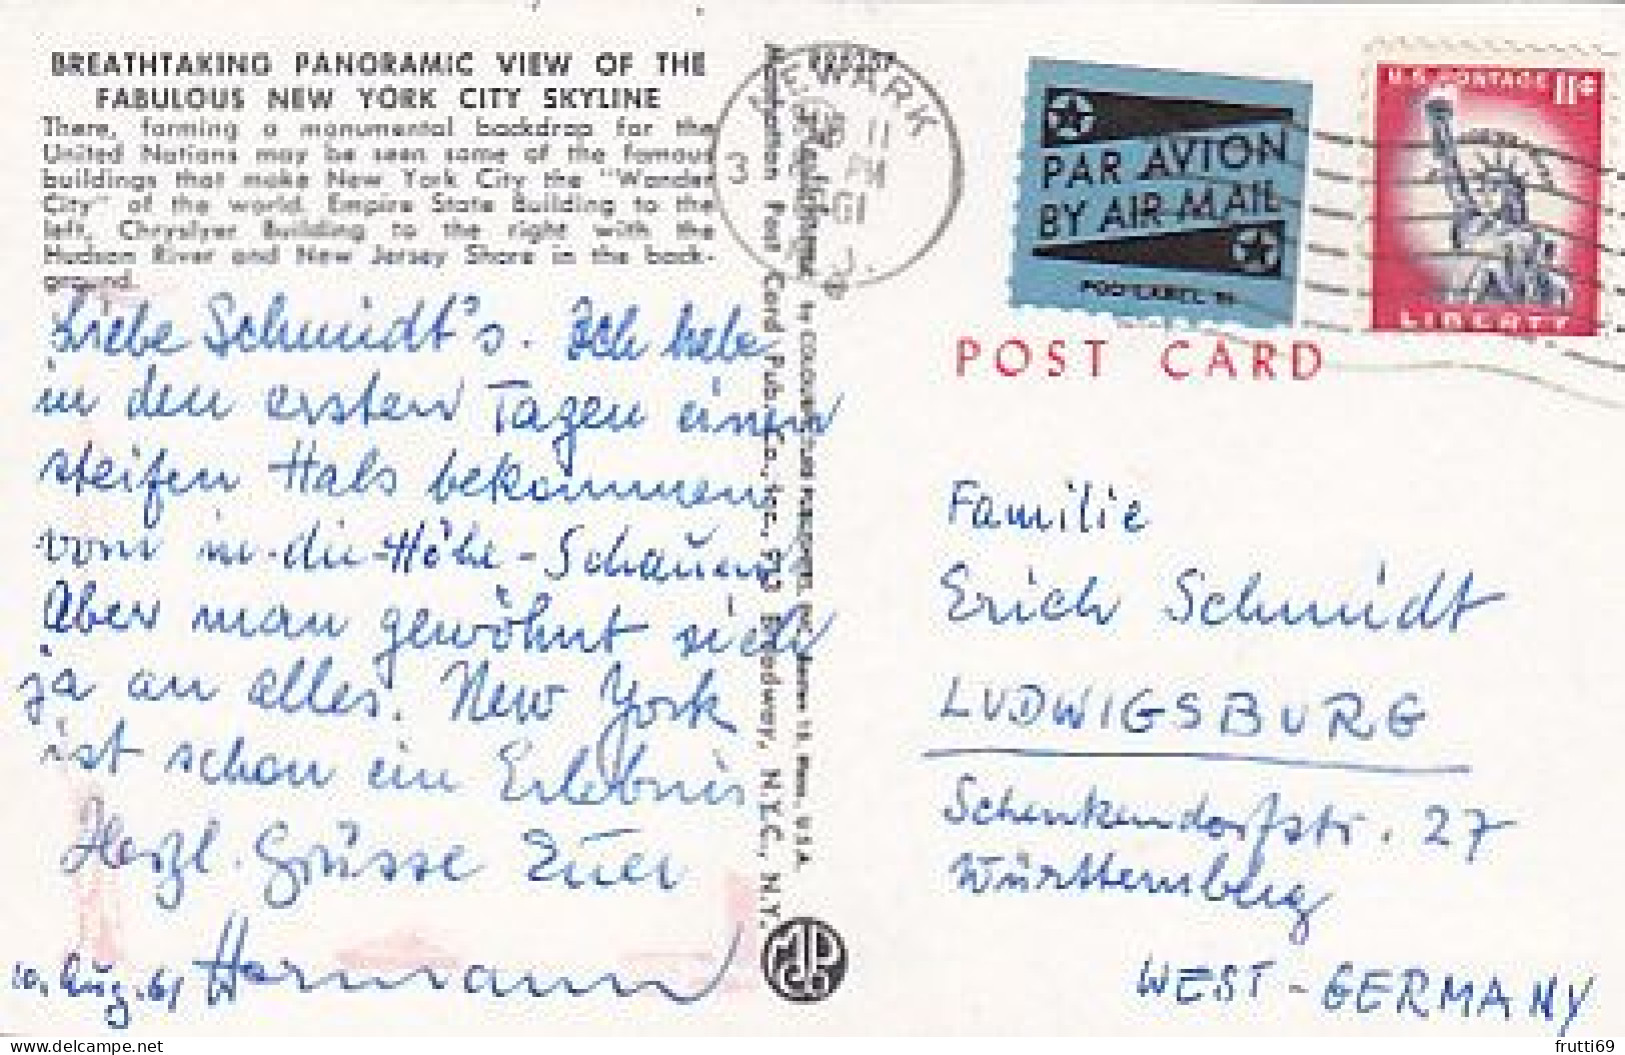 BREATHTAKING PANORAMIC VIEW OF THE
FABULOUS NEW YORK CITY SKYLINE
There, forming a monumental backdrop for the
United Nations may be seen some of the famous
buildings that make New York City the "Wonder
City" of the world. Empire State Building to the
left, Chryslyer Building to the right with the
Hudson River and New Jersey Shore in the back-
ground.
Liebe Schmidt's. Ich habe
in den ersten Tagen einen
steifen Hals bekommen
vom in-die-Höhe-Schauen
Aber man gewöhnt sich
ja an alles. New York
ist schon ein Erlebnis
Herzl. Grüsse Euer
Hermann
10. Aug. 61
Manhattan Post Card Pub. Co., Inc., 913 Broadway, N.Y.C., N.Y.
by COLOURPICTURE PUBLISHERS, INC., Boston 15, Mass., U.S.A.
NEWARK
3
11
PM
61
J.
PAR AVION
BY AIR MAIL
POD LABEL 19
U.S. POSTAGE 11¢
LIBERTY
POST CARD
Familie
Erich Schmidt
LUDWIGSBURG
Schenkendorfstr. 27
Württemberg
WEST-GERMANY
www.delcampe.net
frutti69